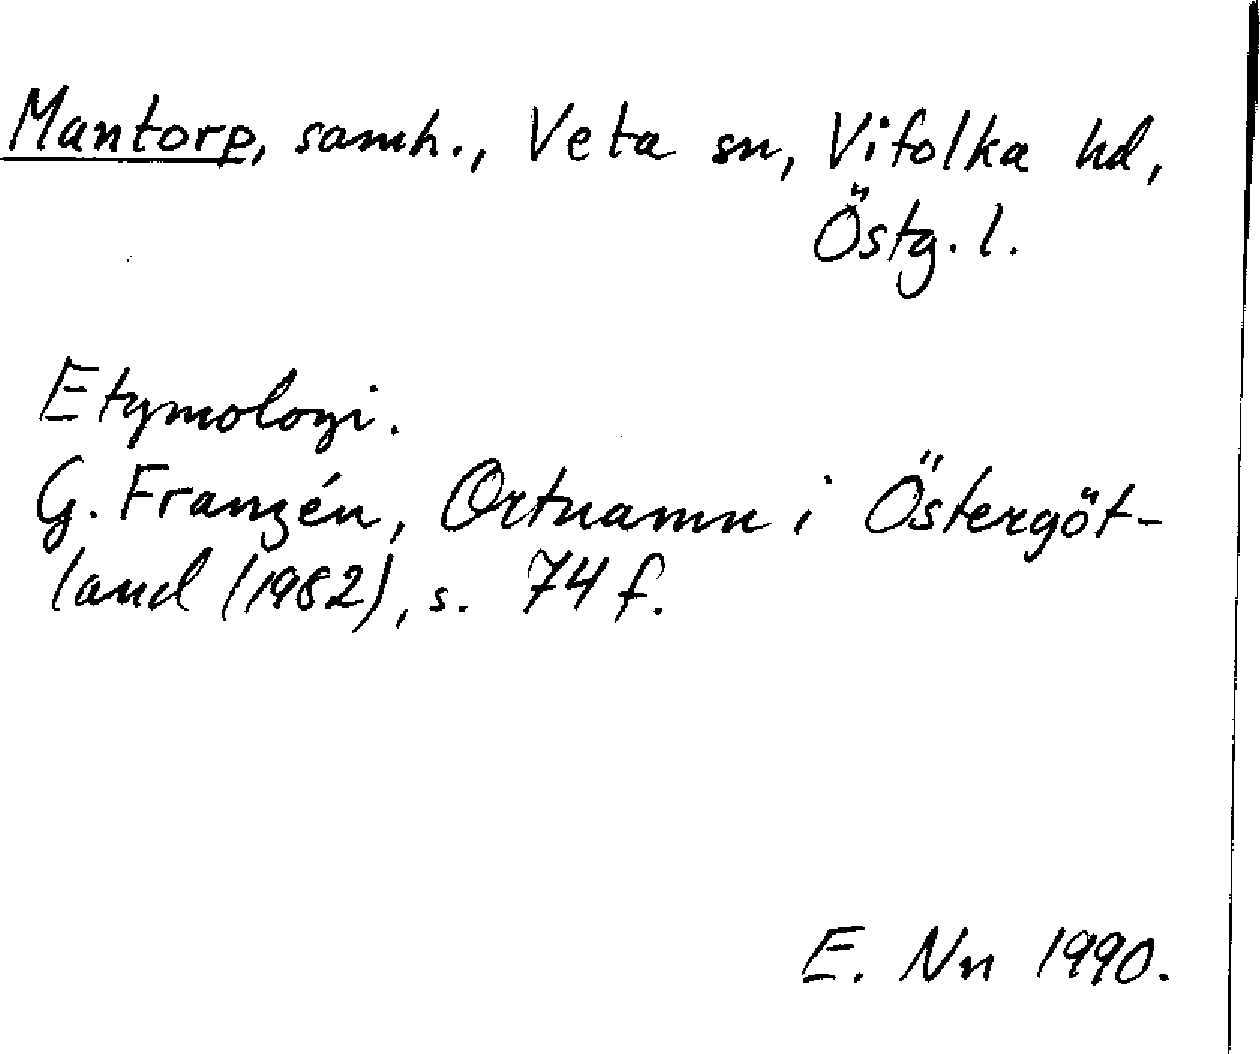 Mantorp, samh., Veta sn, Vifolka hd,
Östg. l.
Etymologi.
G. Franzén, Ortnamn i Östergöt-
land (1982), s. 74 f.
E. Nn 1990.